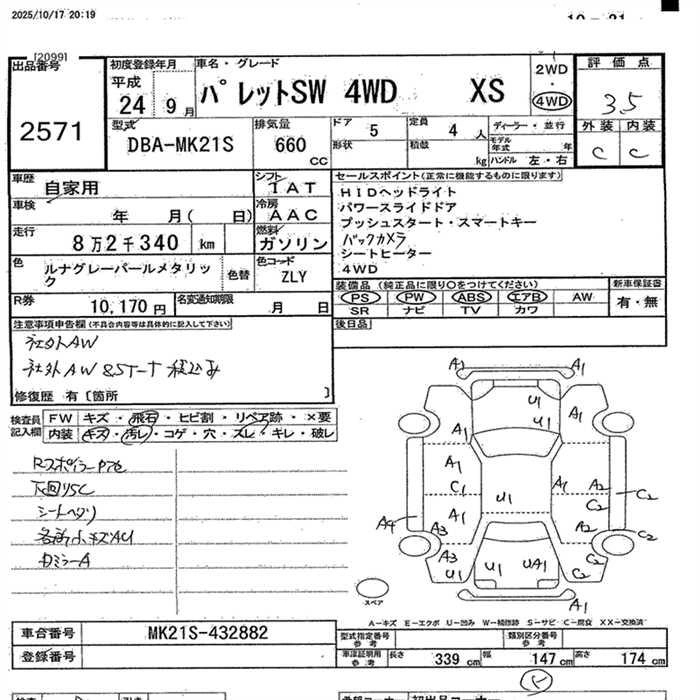 2025/10/17 20:19
[2099]
出品番号
2571
初度登録年月
平成
24 9月
車名・グレード
パレットSW 4WD XS
2WD
・
4WD
評価点
3.5
外装 内装
C C
型式
DBA-MK21S
排気量
660
cc
ドア 5
形状
定員 4 人
積載 kg
ディーラー・並行
モデル年式 年
ハンドル 左・右
車歴 自家用
車検 年 月( 日)
走行 8万2千340 km
色 ルナグレーパールメタリック
色替
シフト 1AT
冷房 AAC
燃料 ガソリン
色コード ZLY
R券 10,170円
名変通知期限 月 日
セールスポイント(正常に機能するものに限ります)
HIDヘッドライト
パワースライドドア
プッシュスタート・スマートキー
バックカメラ
シートヒーター
4WD
装備品(純正品に限り○をつけてください)
PS PW ABS エアB AW
SR ナビ TV カワ
新車保証書
有・無
後日品
注意事項申告欄(不具合内容等は具体的に記入して下さい)
社外AW
社外AW 8.5T-T 積込み
修復歴 有〔箇所 〕
検査員記入欄
FW キズ・飛石・ヒビ割・リペア跡・×要
内装 キズ・汚レ・コゲ・穴・スレ・キレ・破レ
下回りSC
シートヘタリ
各所小キズAU
ロミラーA
A1
U1 A1
A1 U1
A1 A1 A2 C2
C1 U1 C2
A4 A1 A2 C2
A3
A3 U1 UA1 C2
U1 C2
A1
スペア
A−キズ E−エクボ U−凹み W−補修跡 S−サビ C−腐食 XX−交換済
車台番号 MK21S-432882
登録番号
型式指定番号 参考
類別区分番号 参考
車庫証明用 参考
長さ 339cm 幅 147cm 高さ 174cm
5